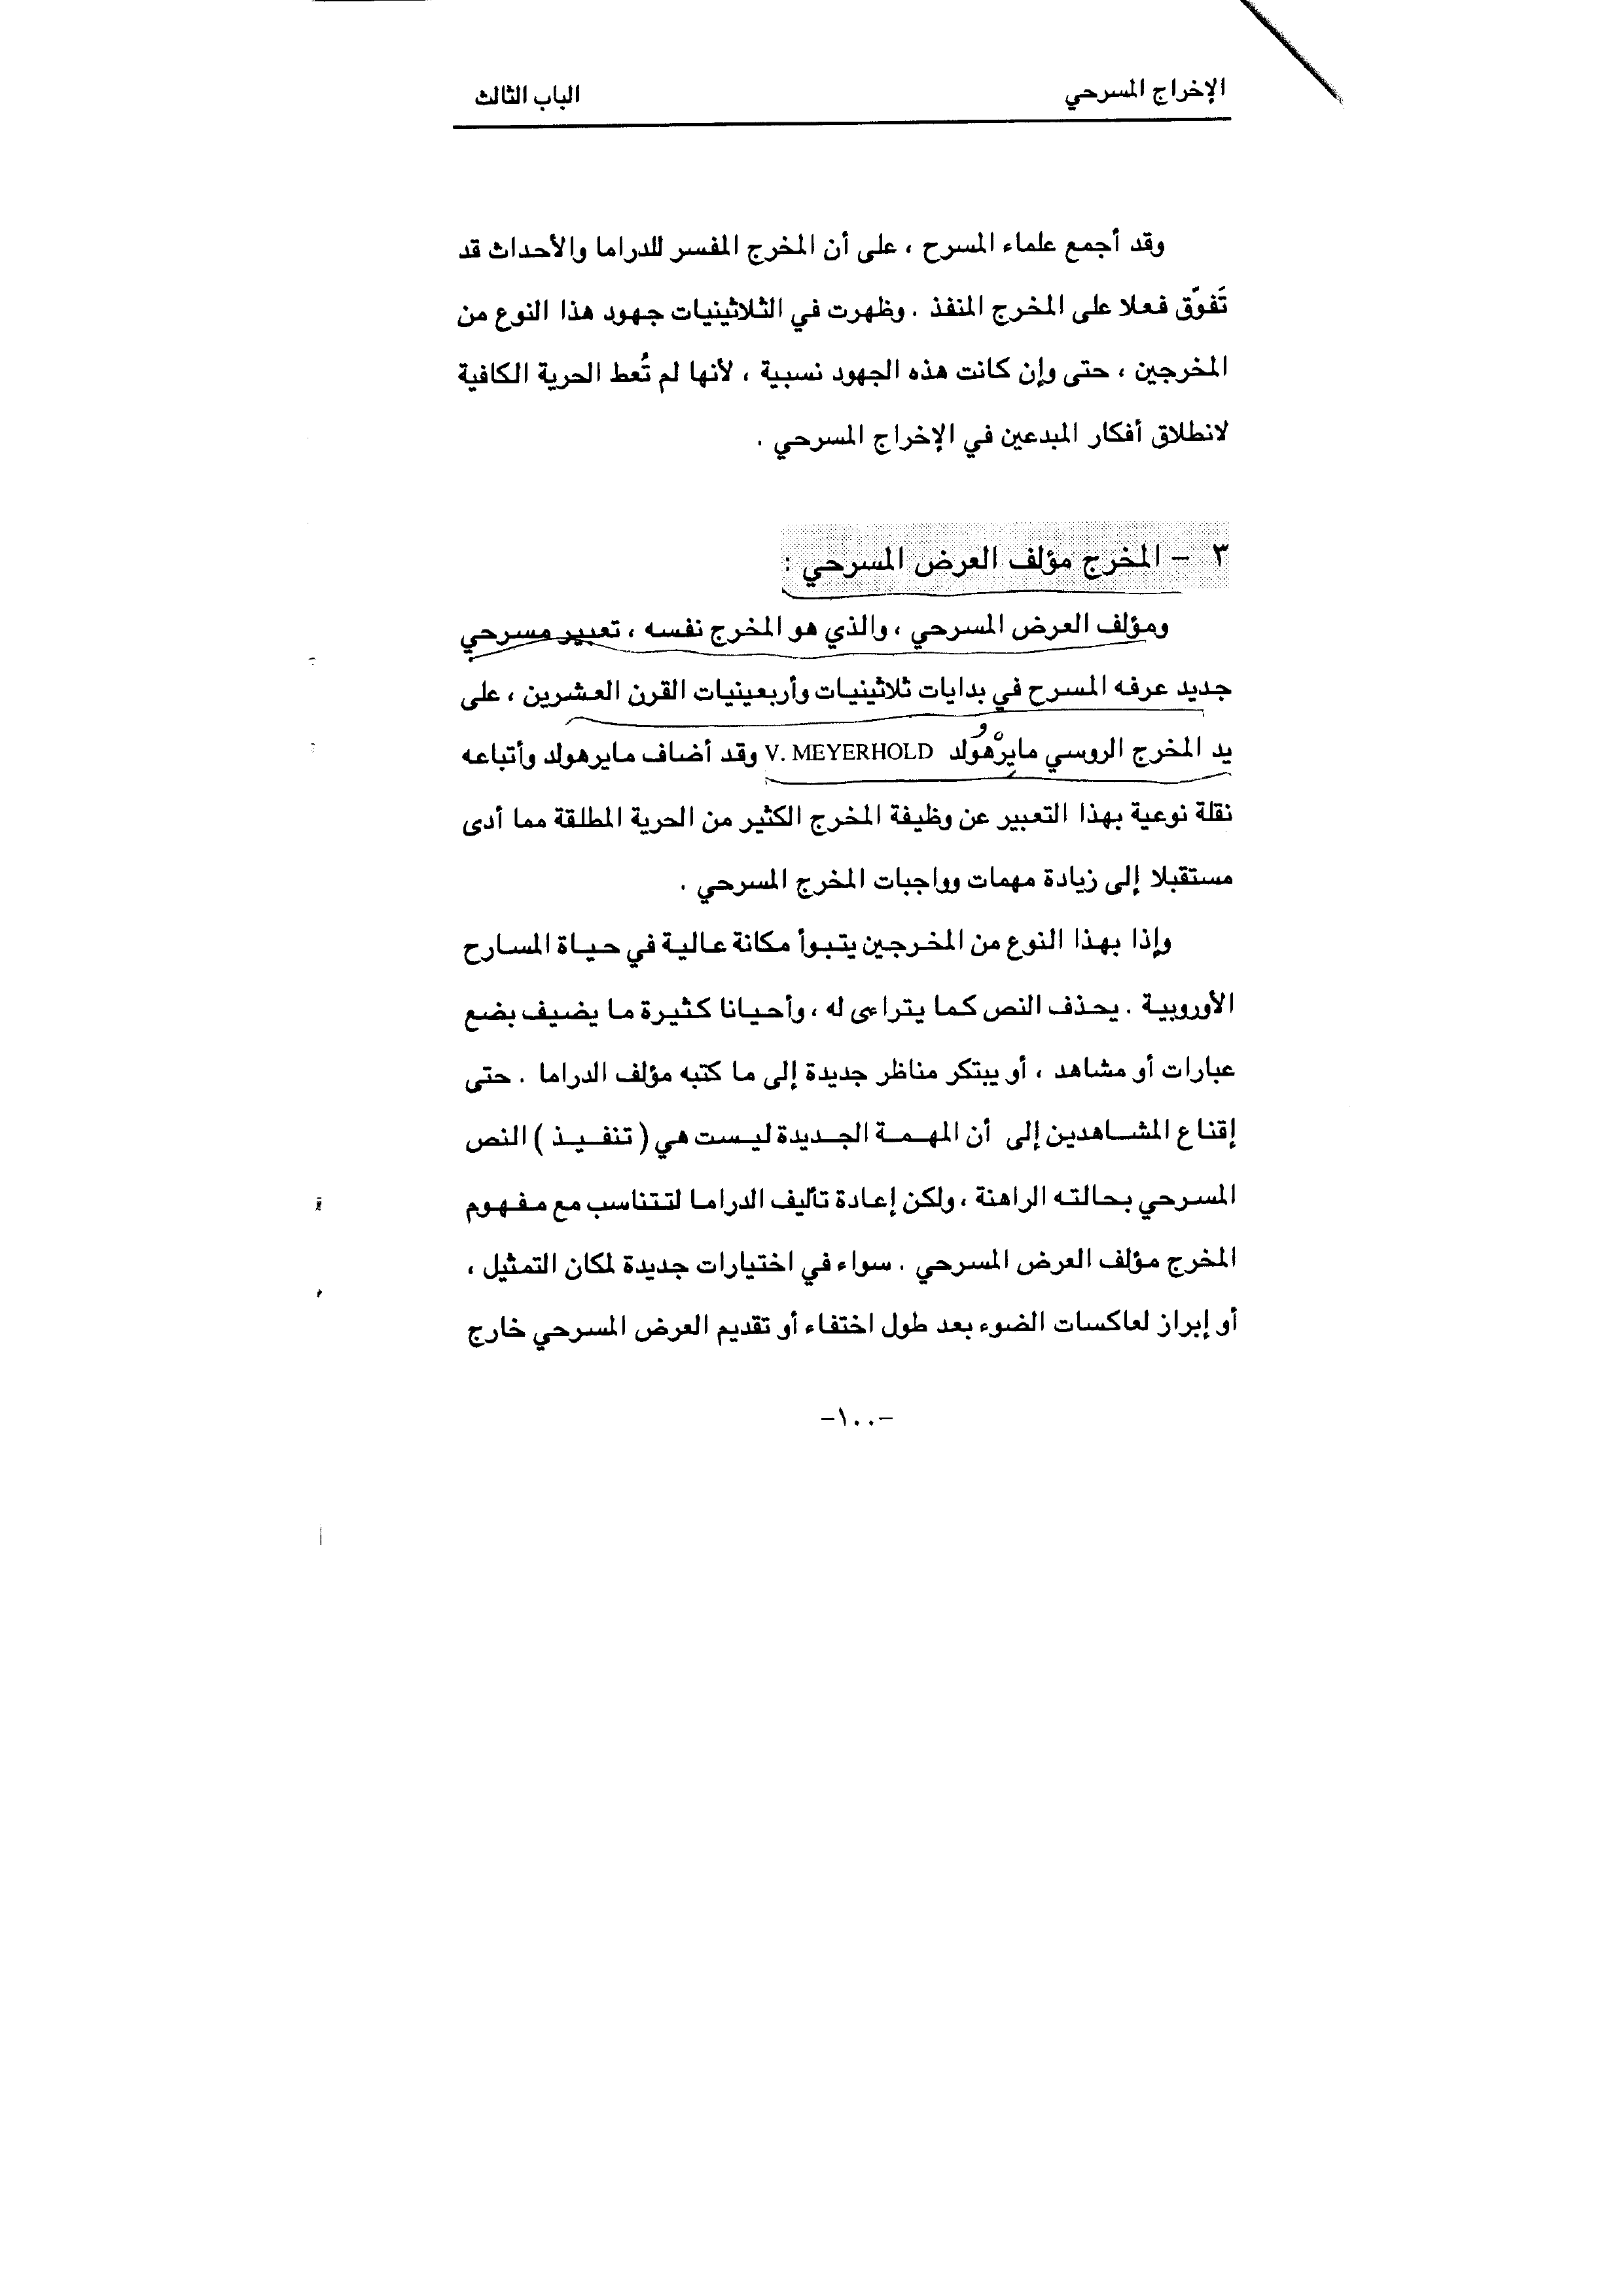 الإخراج المسرحي
الباب الثالث
وقد أجمع علماء المسرح ، على أن المخرج المفسر للدراما والأحداث قد
تَفوّق فعلا على المخرج المنفذ . وظهرت في الثلاثينيات جهود هذا النوع من
المخرجين ، حتى وإن كانت هذه الجهود نسبية ، لأنها لم تُعط الحرية الكافية
لانطلاق أفكار المبدعين في الإخراج المسرحي .
٣ - المخرج مؤلف العرض المسرحي :
ومؤلف العرض المسرحي ، والذي هو المخرج نفسه ، تعبير مسرحي
جديد عرفه المسرح في بدايات ثلاثينيات وأربعينيات القرن العشرين ، على
يد المخرج الروسي مايرْهُولد V. MEYERHOLD وقد أضاف مايرهولد وأتباعه
نقلة نوعية بهذا التعبير عن وظيفة المخرج الكثير من الحرية المطلقة مما أدى
مستقبلا إلى زيادة مهمات وواجبات المخرج المسرحي .
وإذا بهذا النوع من المخرجين يتبوأ مكانة عالية في حياة المسارح
الأوروبية . يحذف النص كما يتراءى له ، وأحيانا كثيرة ما يضيف بضع
عبارات أو مشاهد ، أو يبتكر مناظر جديدة إلى ما كتبه مؤلف الدراما . حتى
إقناع المشاهدين إلى أن المهمة الجديدة ليست هي ( تنفيذ ) النص
المسرحي بحالته الراهنة ، ولكن إعادة تأليف الدراما لتتناسب مع مفهوم
المخرج مؤلف العرض المسرحي . سواء في اختيارات جديدة لمكان التمثيل ،
أو إبراز لعاكسات الضوء بعد طول اختفاء أو تقديم العرض المسرحي خارج
-١٠٠-